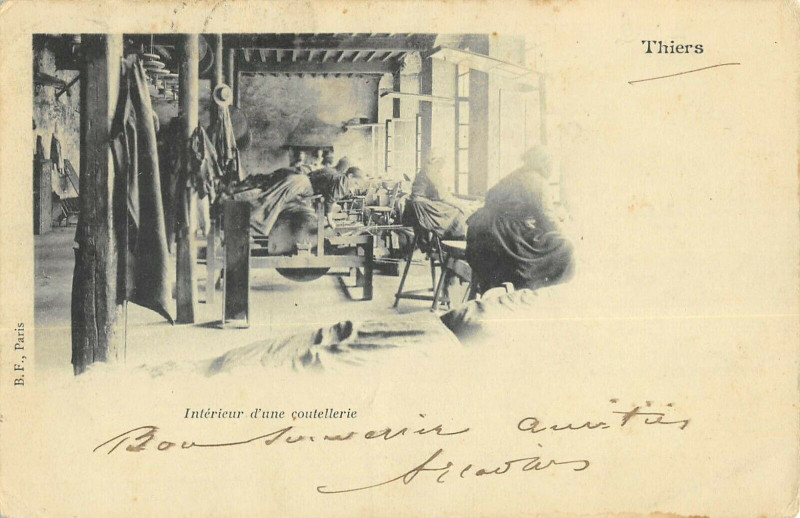 Thiers
B. F., Paris
Intérieur d'une çoutellerie
Bon Souvenir amitiés